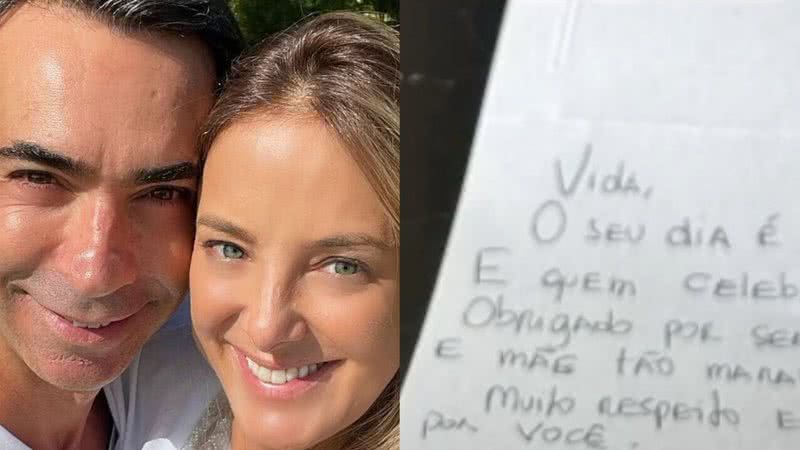 Vida,
O SEU DIA É
E QUEM CELEB
Obrigado por SER
E MÃE TÃO MARA
MUITO RESPEITO E
POR VOCÊ.